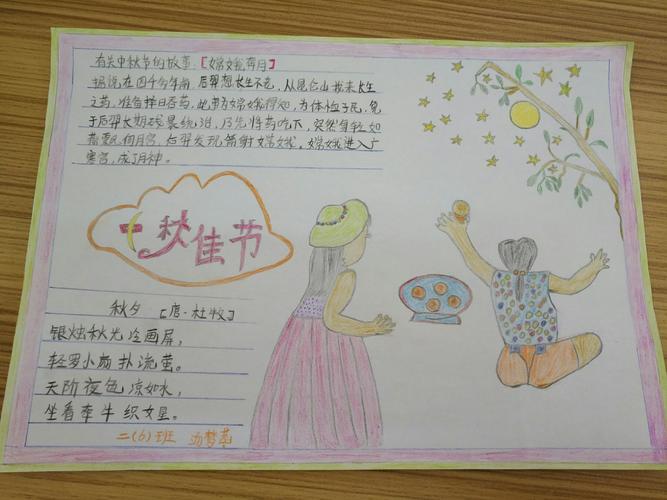 有关中秋节的故事.【嫦娥奔月】
据说,在四千多年前,后羿想长生不老,从昆仑山找来长生
之药,准备择日吞药,此事为嫦娥得知,为体恤子民,免
于后羿长期残暴统治,乃先将药吃下,突然身轻如
燕飘向月宫,后羿发现箭射嫦娥,嫦娥进入广
寒宫,成了月神。
中秋佳节
秋夕 【唐·杜牧】
银烛秋光冷画屏,
轻罗小扇扑流萤。
天阶夜色凉如水,
坐看牵牛织女星。
二(6)班